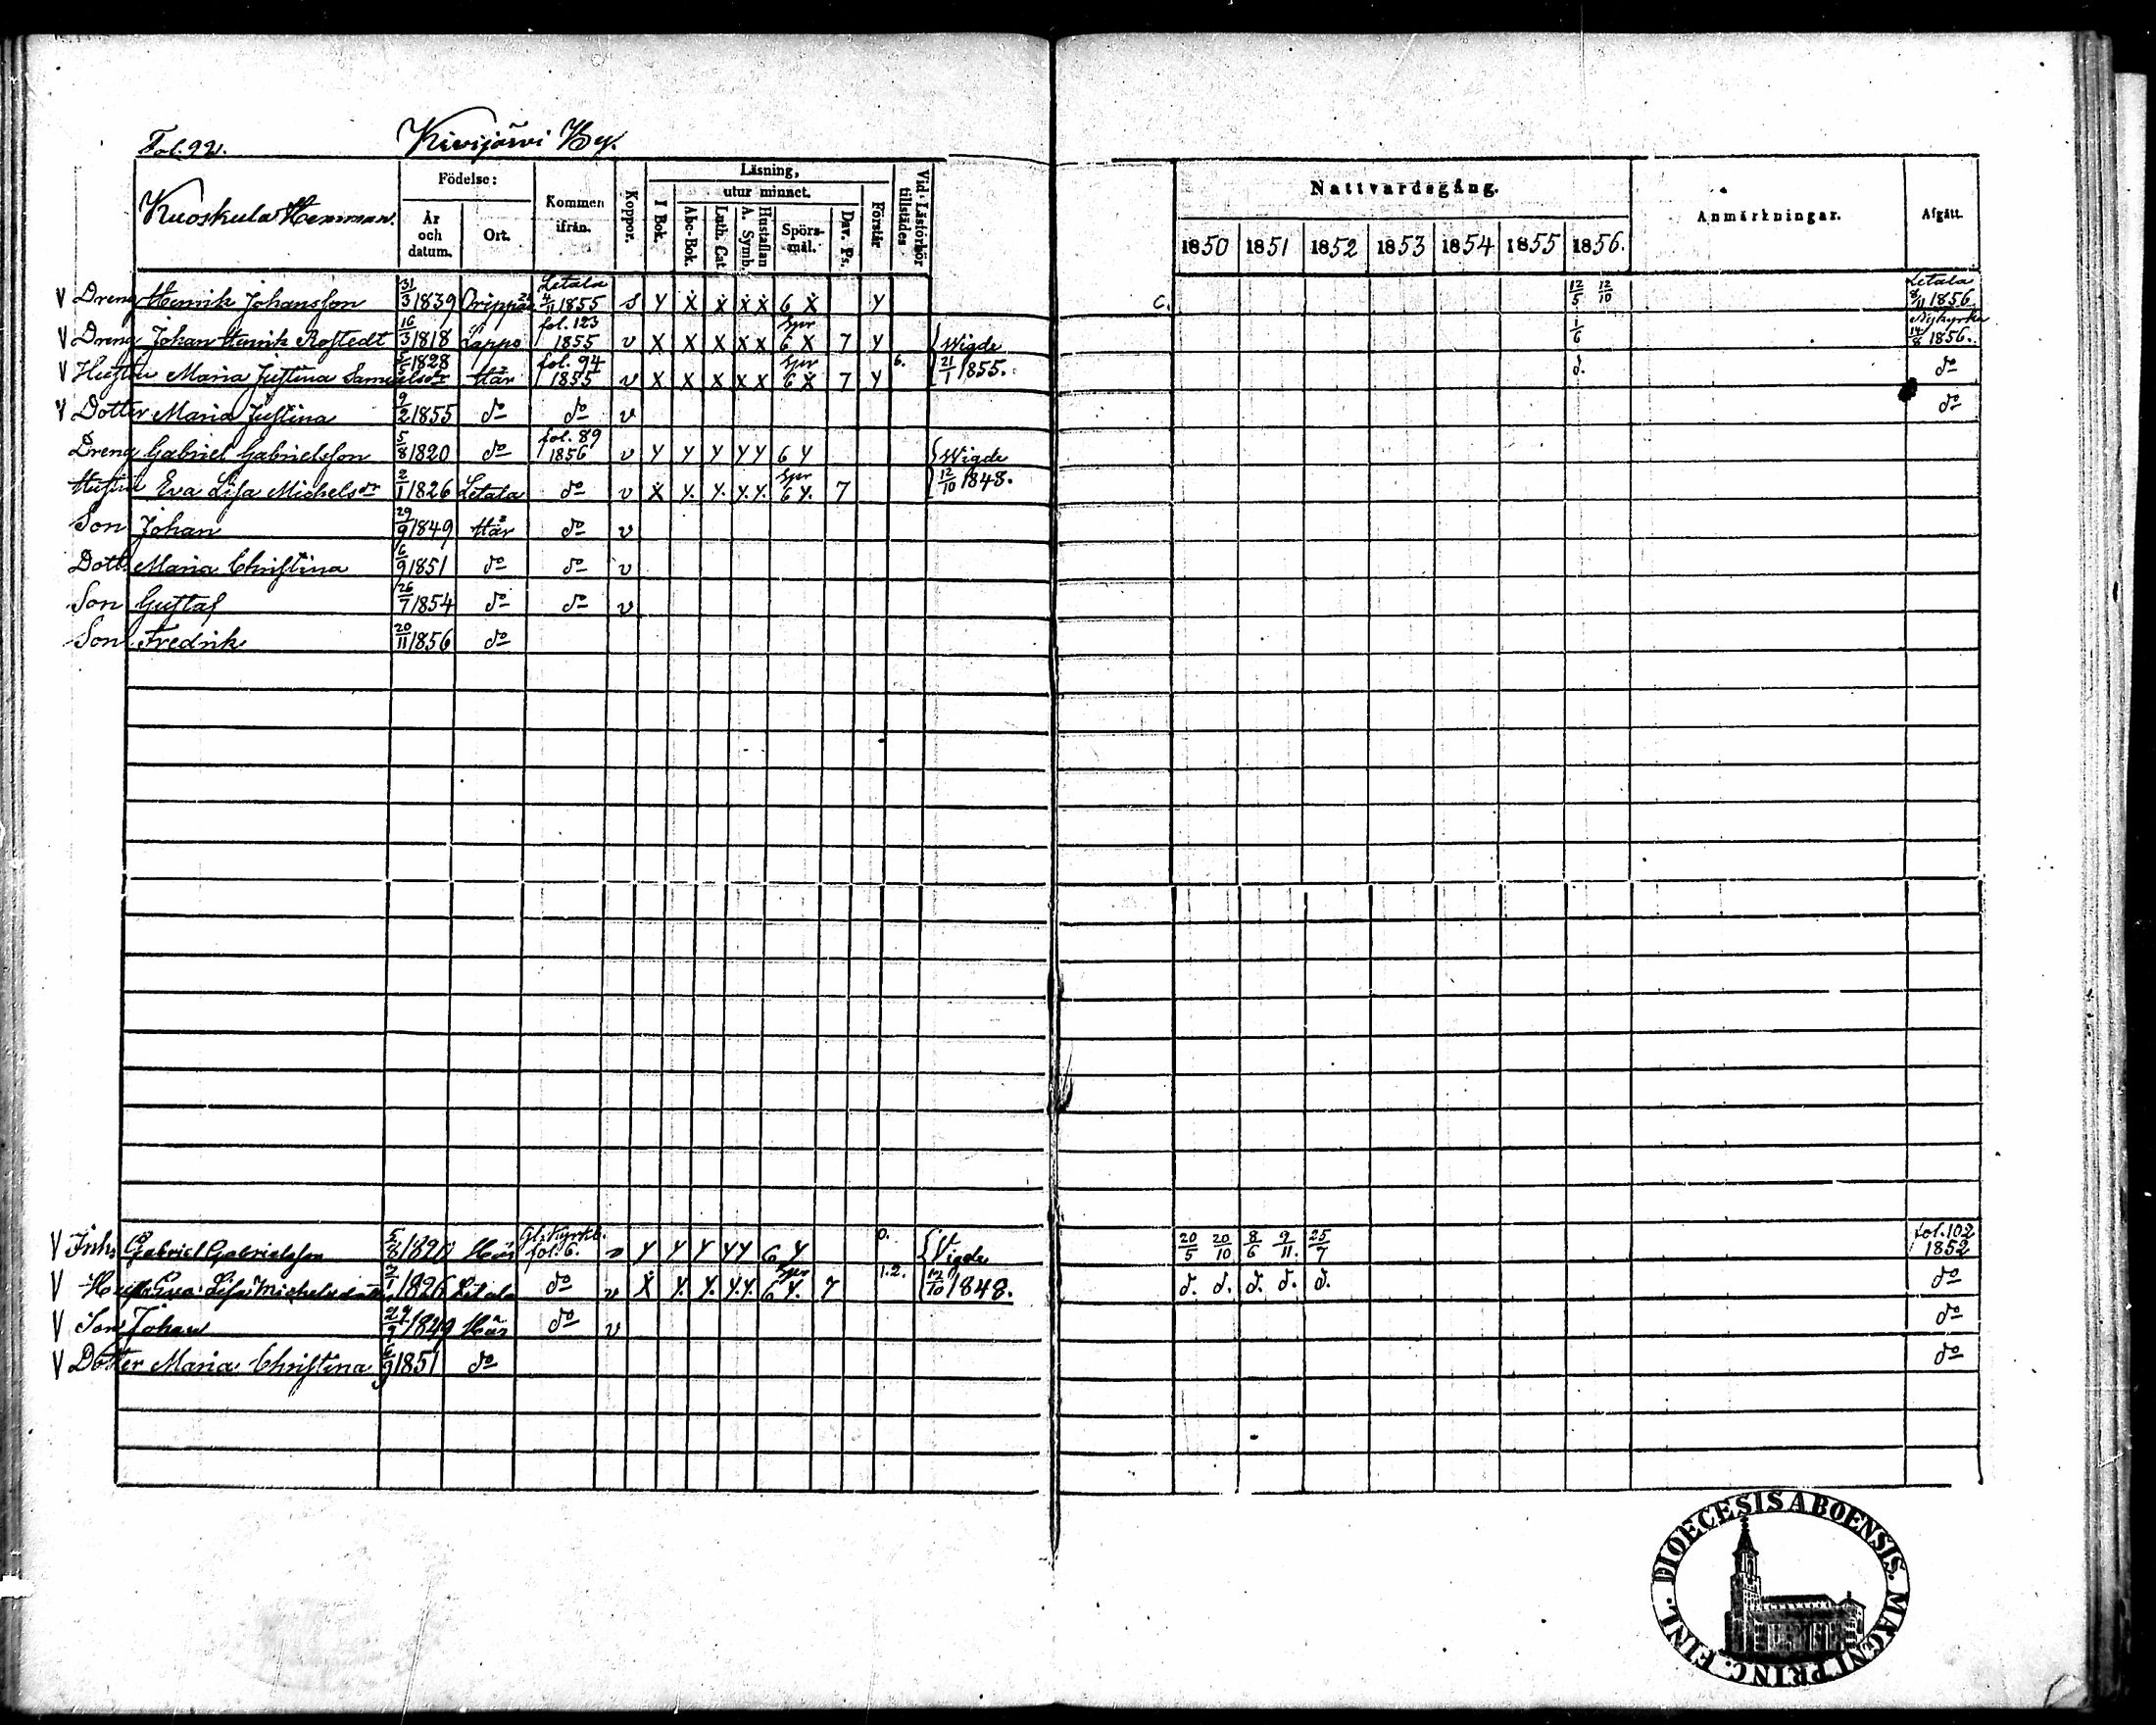 Fol. 92. Kivijärvi By.
Kuoskula Hemman. Födelse: År och datum. Ort. Kommen ifrån. Koppor. Läsning, I Bok. utur minnet. Abc-Bok. Luth. Cat Hustaflan A. Symb. Spörsmål. Dav. Ps. Förstår Vid Läsförhör tillstädes Nattvardsgång. 1850 1851 1852 1853 1854 1855 1856. Anmärkningar. Afgått.
V Dreng Henrik Johansson 31/3 1839 Letala 4/11 1855 s Y X X X X 6 X Y C. 12/5 12/10 Letala 8/11 1856
V Dreng Johan Henrik Rostedt 16/3 1818 Lappo fol. 123 1855 v X X X X X Spr 6 X 7 Y Wigde 1/6 Nykyrka 14/8 1856.
V Hustru Maria Justina Samuelsdr 5/5 1828 Här fol. 94 1855 v X X X X X Spr 6 X 7 Y 6. 21/1 1855. d. do
V Dotter Maria Justina 9/2 1855 do do v do
Dreng Gabriel Gabrielsson 5/8 1820 do fol. 89 1856 v Y Y Y Y Y 6 Y Wigde
Hustru Eva Lisa Michelsdr 2/1 1826 Letala do v X Y. Y. Y. Y. Spr 6 Y. 7 12/10 1848.
Son Johan 29/9 1849 Här do v
Dott. Maria Christina 6/9 1851 do do v
Son Gustaf 26/7 1854 do do v
Son Fredrik 20/11 1856 do
V Inhs Gabriel Gabrielsson 5/8 1820 Här Gl. Kyrkb. fol. 6. v Y Y Y Y Y 6 Y 0. Vigde 20/5 20/10 8/6 9/11. 25/7 fol. 102 1852
V Hustr. Eva Lisa Michelsdotter 2/1 1826 Letala do v X Y. Y. Y. Y. Spr 6 Y. 7 1.2. 12/10 1848. d. d. d. d. d. do
V Son Johan 29/9 1849 Här do v do
V Dotter Maria Christina 6/9 1851 do do
DIOECESIS ABOENSIS. MAGNI PRINC. FINL.